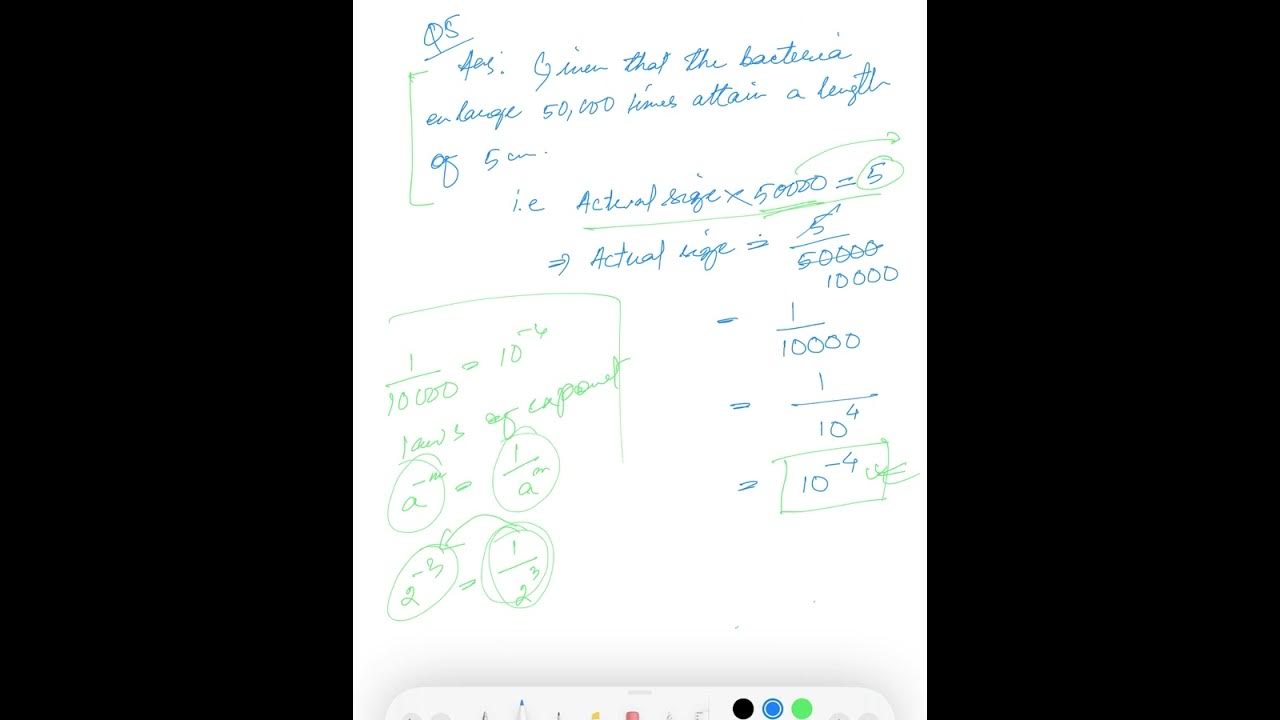 Q5
Ans: Given that the bacteria
enlarge 50,000 times attain a length
of 5 cm.
i.e Actual size × 50000 = 5
⇒ Actual size = 5/50000
10000
= 1/10000
= 1/10^4
= 10^-4
1/10000 = 10^-4
laws of exponet
a^-m = 1/a^m
2^-3 = 1/2^3